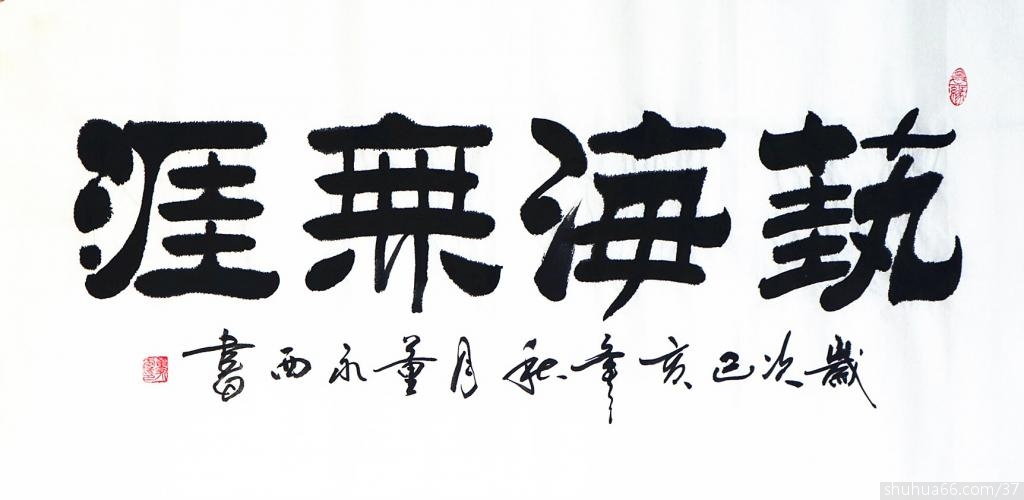 藝海無涯
歲次己亥年秋月董永西書
shuhua66.com/37